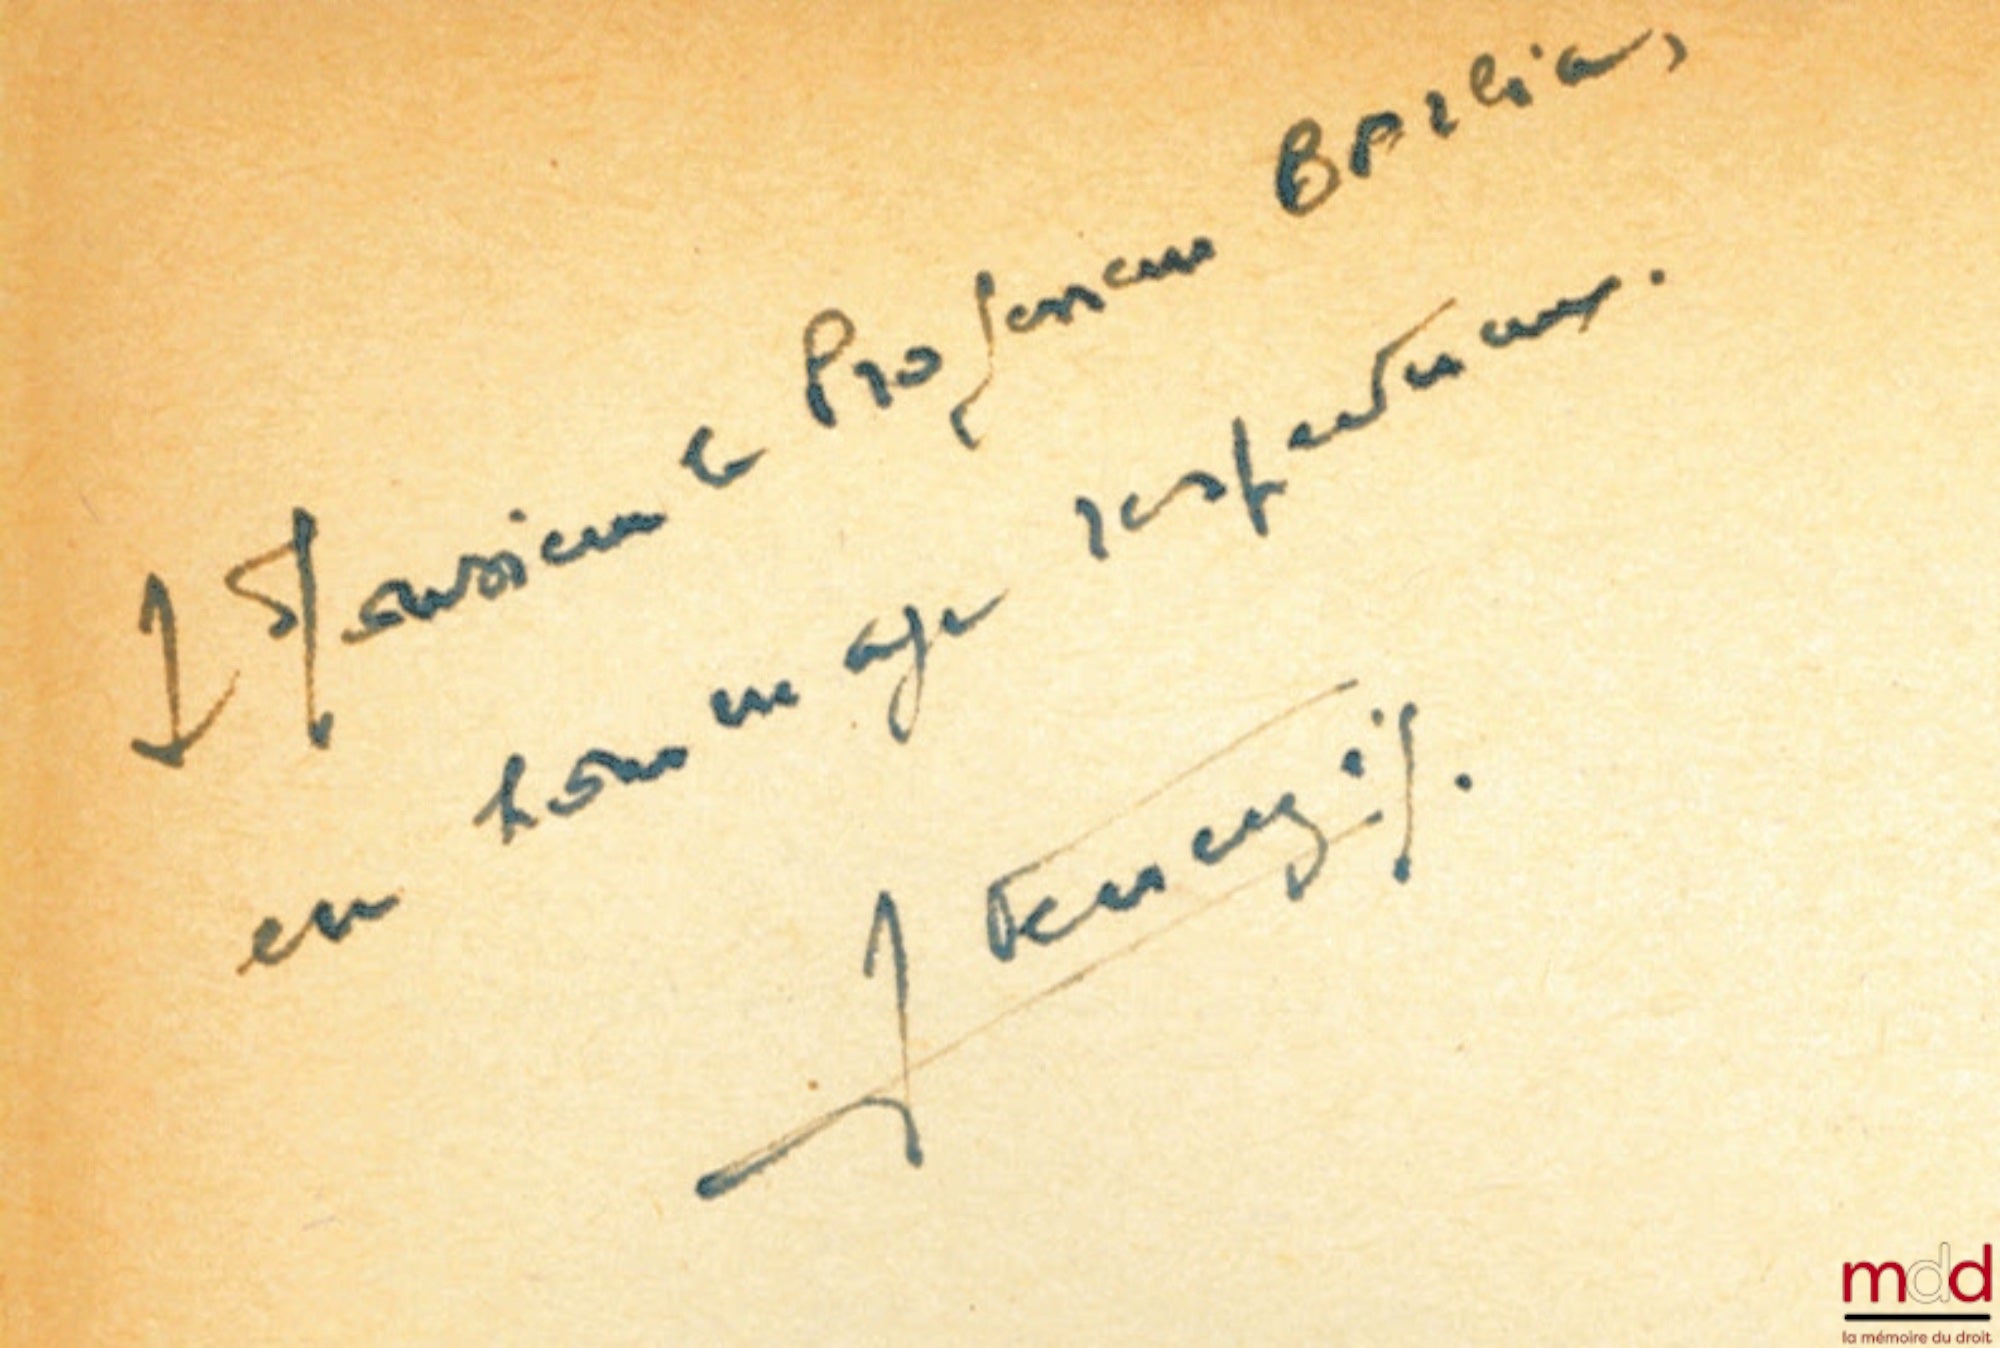 A Monsieur le Professeur
en hommage respectueux.
mdd
la mémoire du droit